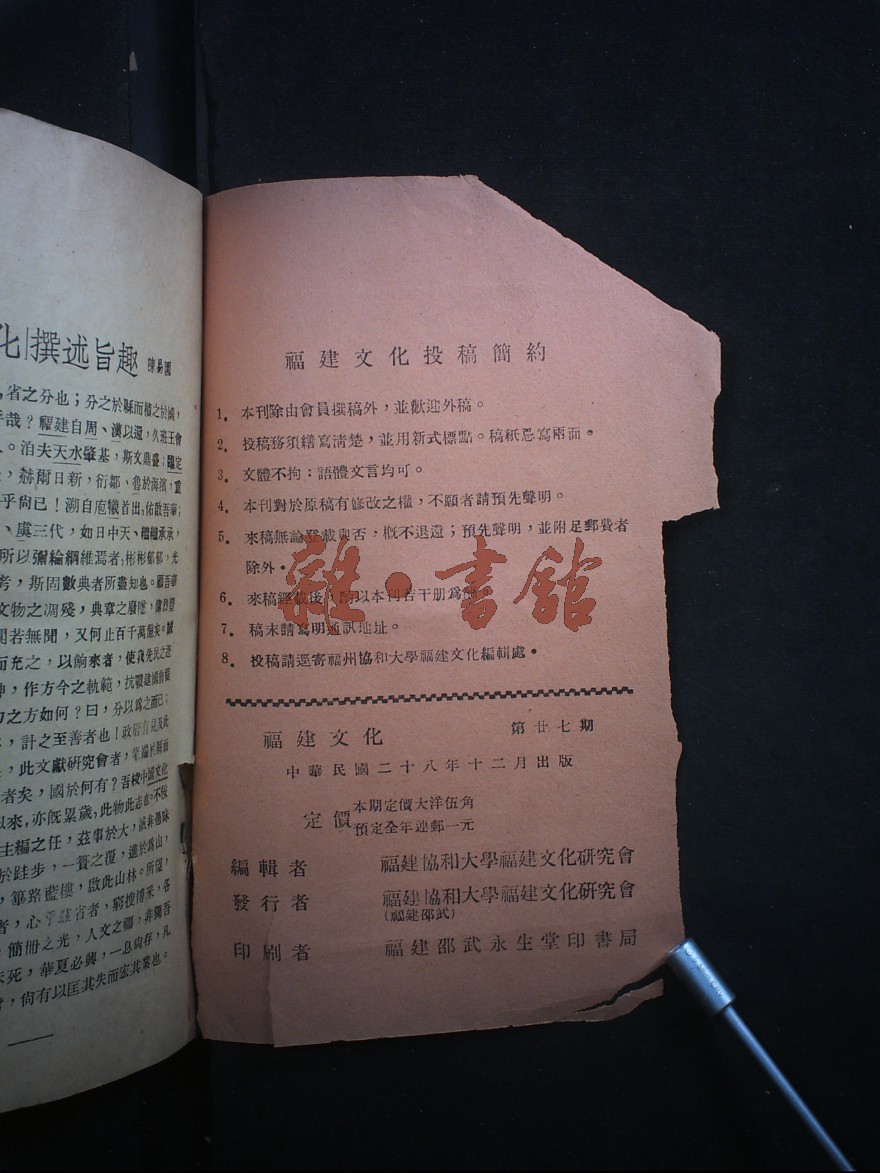 福建文化投稿簡約
1. 本刊除由會員撰稿外，並歡迎外稿。
2. 投稿務須繕寫清楚，並用新式標點。稿紙忌寫兩面。
3. 文體不拘：語體文言均可。
4. 本刊對於原稿有修改之權，不願者請預先聲明。
5. 來稿無論登載與否，概不退還；預先聲明，並附足郵費者
除外。
6. 來稿經載後，酌以本刊若干册爲
7. 稿末請寫明通訊地址。
8. 投稿請逕寄福州協和大學福建文化編輯處。
雜·書館
福建文化 第廿七期
中華民國二十八年十二月出版
定價 本期定價大洋伍角
預定全年連郵一元
編輯者 福建協和大學福建文化研究會
發行者 福建協和大學福建文化研究會
(福建邵武)
印刷者 福建邵武永生堂印書局
化」撰述旨趣 陳易園
，省之分也；分之於縣而積之於國，
哉？福建自周、漢以還，久班王會
。洎夫天水肇基，斯文鼎盛；
，赫爾日新，衍鄒、魯於海濱，
乎尙已！溯自庖犧首出，佑啟吾華；
、虞三代，如日中天、繼繼承承，
所以彌綸綱維焉者；彬彬郁郁，光
考，斯固數典者所盡知也。
文物之凋殘，典章之廢墜，
闃若無聞，又何止百千萬億矣。
而充之，以餉來者，使我先民之
，作方今之軌範，抗戰建國
之方如何？曰，分以爲之而已；
，計之至善者也！政府有見及此
，此文獻研究會者，
者矣，國於何有？吾校中國文化
以來，亦旣累歲，此物此志也。不佞
主編之任，茲事於大，誠非愚昧
於跬步，一簣之覆，進於爲山，
，篳路藍樓，啟此山林。所望，
者，心乎茲省者，窮搜博采，各
簡冊之光，人文之福，非獨吾
未死，華夏必興，一息尙存，凡
，尙有以匡其失而宏其業也。